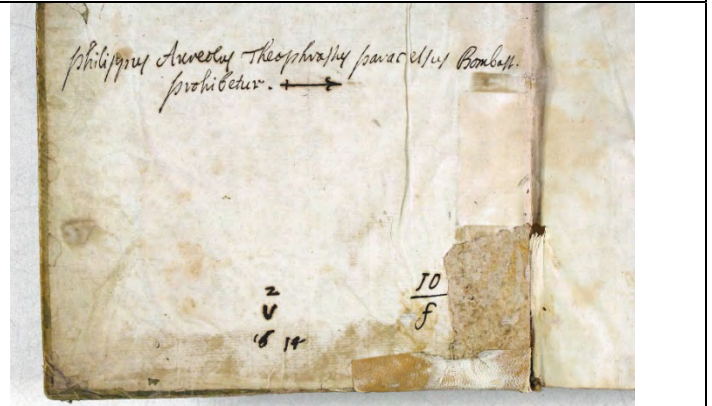 philippus Aureolus Theophrastus paracelsus Bombast.
prohibetur.
2
V
16 14
10
f